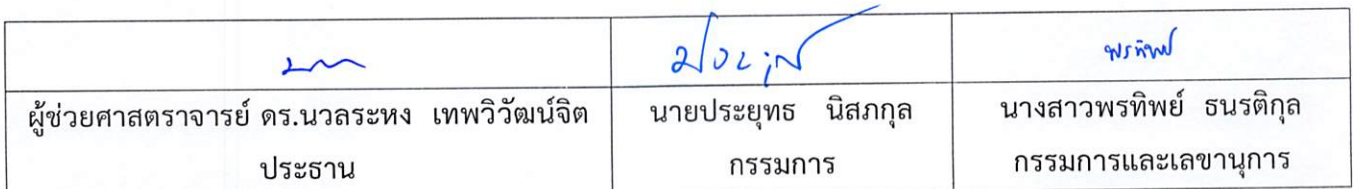 พรทิพย์
ผู้ช่วยศาสตราจารย์ ดร.นวลระหง เทพวิวัฒน์จิต
ประธาน
นายประยุทธ นิสภกุล
กรรมการ
นางสาวพรทิพย์ ธนรติกุล
กรรมการและเลขานุการ